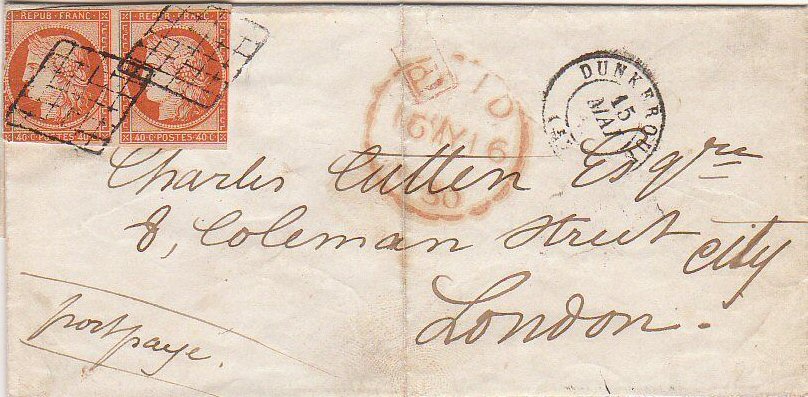 REPUB·FRANC REPUB·FRANC
40·C·POSTES·40·C 40·C·POSTES·40·C
PAID
16 MY 16
50
DUNKERQUE
15
MAI
Charles Cutten Esqre
8, Coleman Street City
London.
port payé.